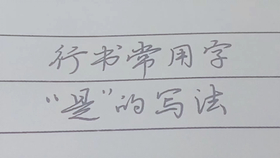 行书常用字
“是”的写法